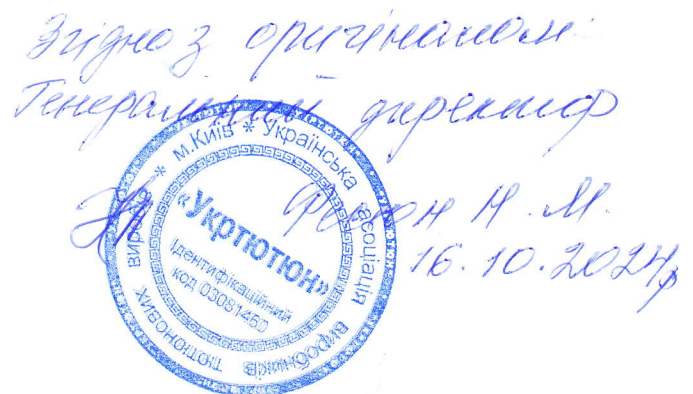 Згідно з оригіналом:
Генеральний директор
Н. М.
16.10.2024р
* м.Київ * Українська асоціація виробників тютюнових виробів
«Укртютюн»
Ідентифікаційний
код 03081460